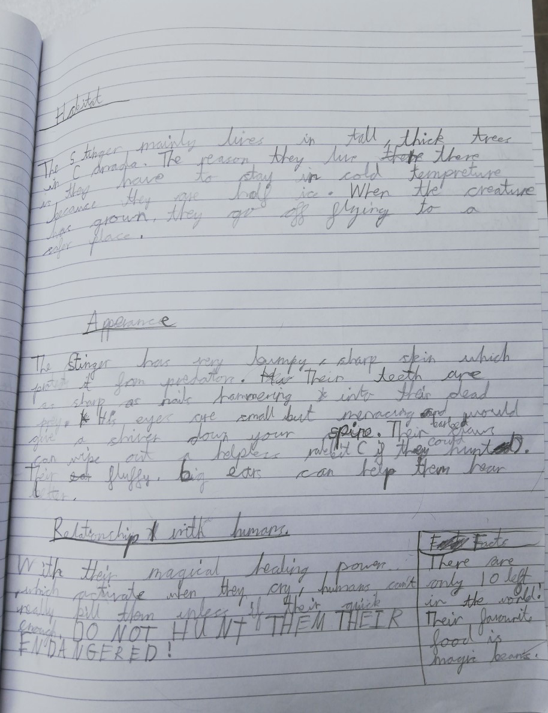 Habitat
The Stinger mainly lives in tall, thick trees
in Canada. The reason they live there
is they have to stay in cold tempreture
because they are half ice. When the creature
has grown, they go off flying to a
safer place.
Apperance
The Stinger has very bumpy & sharp skin which
protect it from predators. Their teeth are
as sharp as nails hammering into this dead
eyes are small but menacing and would
give a shiver down your spine. Their
can wipe out a helpless rabbit if they could hunt
Their fluffy, big ears can help them hear
better.
Relationship with humans
With their magical healing power
which activate when they cry, humans can't
really kill them unless if their quick
enough. DO NOT HUNT THEM THEIR
ENDANGERED!
Facts
There are
only 10 left
in the world!
Their favourite
food is
magic beans.